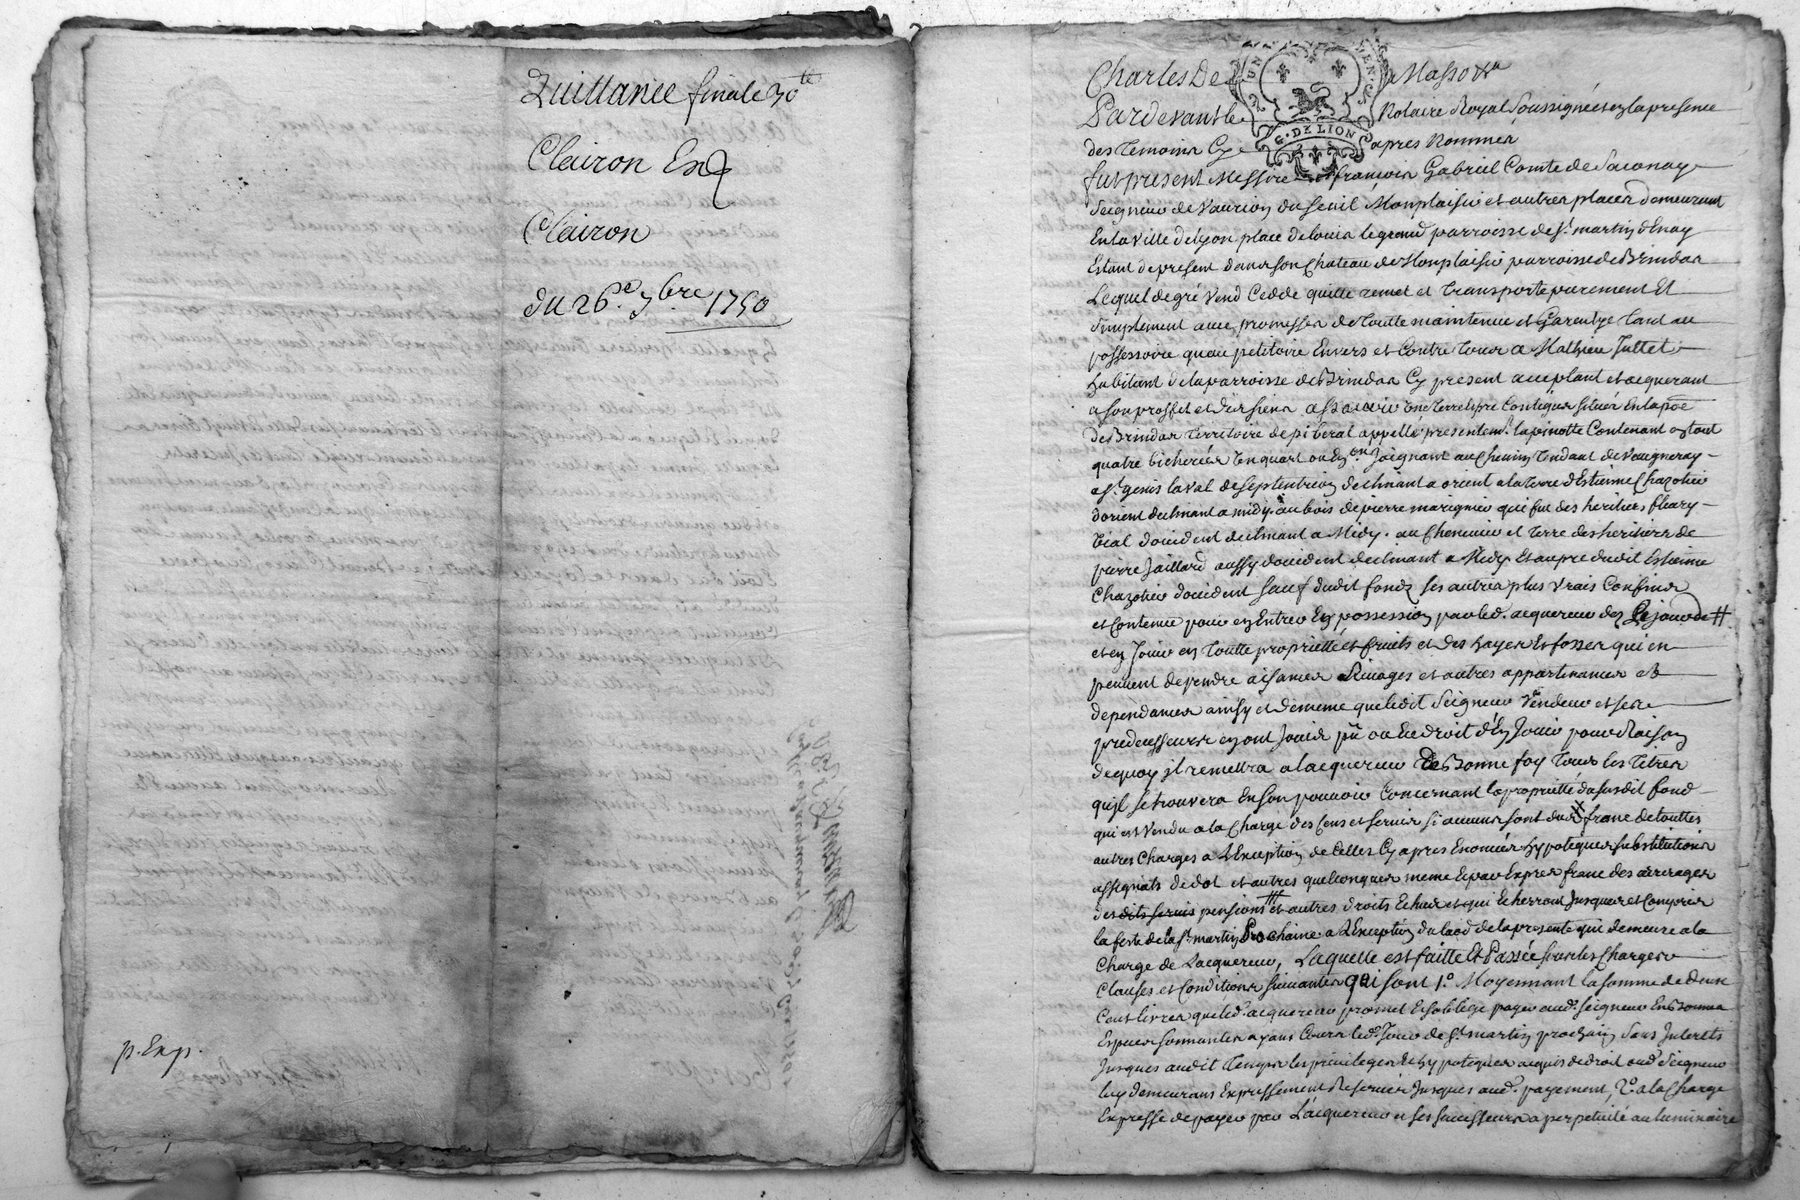 Quittance finale 30ᵗᵗ
Clairon Et
Clairon
du 26ᵉ 7bre 1750
p. Exp.
Charles De Masso &ᵃ
UN
EN. CU
G. DE LION
Pardevant le Notaire Royal soussigné et en la presence
des temoins Cy apres Nommés
fut present Messire françois Gabriel Comte de Saconay
Seigneur de Vaurion du Seuil Monplaisir et autres places demeurant
En la ville de Lyon place de Louis le grand parroisse de St. martin d'Enay
Estant de present dans son Chateau de Monplaisir parroisse de Brindas
Lequel de gré vend Cedde quitte remet et transporte purement Et
simplement avec promesses de toutte maintenue et garentye tant au
possessoire qu'au petitoire Envers et Contre tous a Mathieu Juttet
habitant de la parroisse de Brindas Cy present acceptant et acquerant
a son proffit et des siens assavoir une terre Contigues située En la poe
de Brindas territoire de piberat appellé presentemt. la pinotte Contenant en tout
quatre bicherées un quart ou Env.on Joignant au Chemin tendant de Vaugneray
a St. genis laval de septentrion declinant a orient a la terre d'Estienne Chazotier
d'orient declinant a midy au bois de pierre marignier qui fut des heritiers fleury
Vial d'occident declinant a Midy. au Chemin et terre des heritiers de
pierre Jaillard aussy d'occident declinant a Midy Et au pre dudit Estienne
Chazotier d'occident sauf dudit fondz ses autres plus vrais Confins
et Contenue pour en Entrer En possession par led. acquereur dez Ce jourd'h #
et en Jouir en toutte proprietté et fruits et des hayes Et fosses qui en
peuvent dependre aisances Priuages et autres appartenances et
dependances ainsy et de meme que ledit Seigneur Vendeur et ses
predecesseurs en ont Jouir pû ou Eu droit d'En Jouir pour Raison
de quoy il remettra a l'acquereur de Bonne foy tous les titres
qu'il se trouvera En son pouvoir Concernant la proprietté du susdit fond
qui est vendu a la Charge des Cens et servis si aucuns sont dus franc de touttes
autres Charges a L'Exception de Celles Cy apres Enoncées hypoteques substitutions
assignats de dot et autres quelconques meme Et par Expres franc des arrerages
desdits servis pensions et autres droits Echus et qui Echerront Jusques et Compris
la feste de la St. martin Prochaine a L'Exception du laod de la presente qui demeure a la
Charge de L'acquereur, Laquelle est faitte Et Passée sous les Charges
Clauses et Conditions suivantes qui sont 1° Moyennant la somme de deux
Cent livres que led. acquereur promet Et s'oblige payer aud. Seigneur En Bonnes
Especes sonnantes ayans Cours led. Jour de St. martin prochain sans Interets
Jusques audit temps les privileges Et hypoteques acquis de droit aud. Seigneur
luy demeurans Expressement Reservés Jusques aud. payement, 2° a la Charge
Expresse de payer par L'acquereur et ses successeurs a perpetuité au luminaire